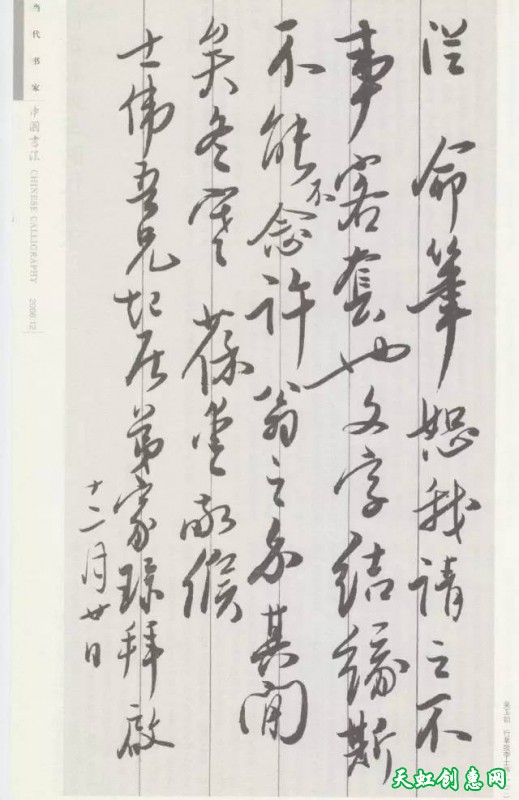 从命笔恕我请之不
事客套也文字结缘斯
不能不念许翁之介其间
矣冬寒葆爱敬候
士伟吾兄起居弟家琭拜启
十二月廿日
当代书家
中国书法 CHINESE CALLIGRAPHY 2006.12
天虹创惠网